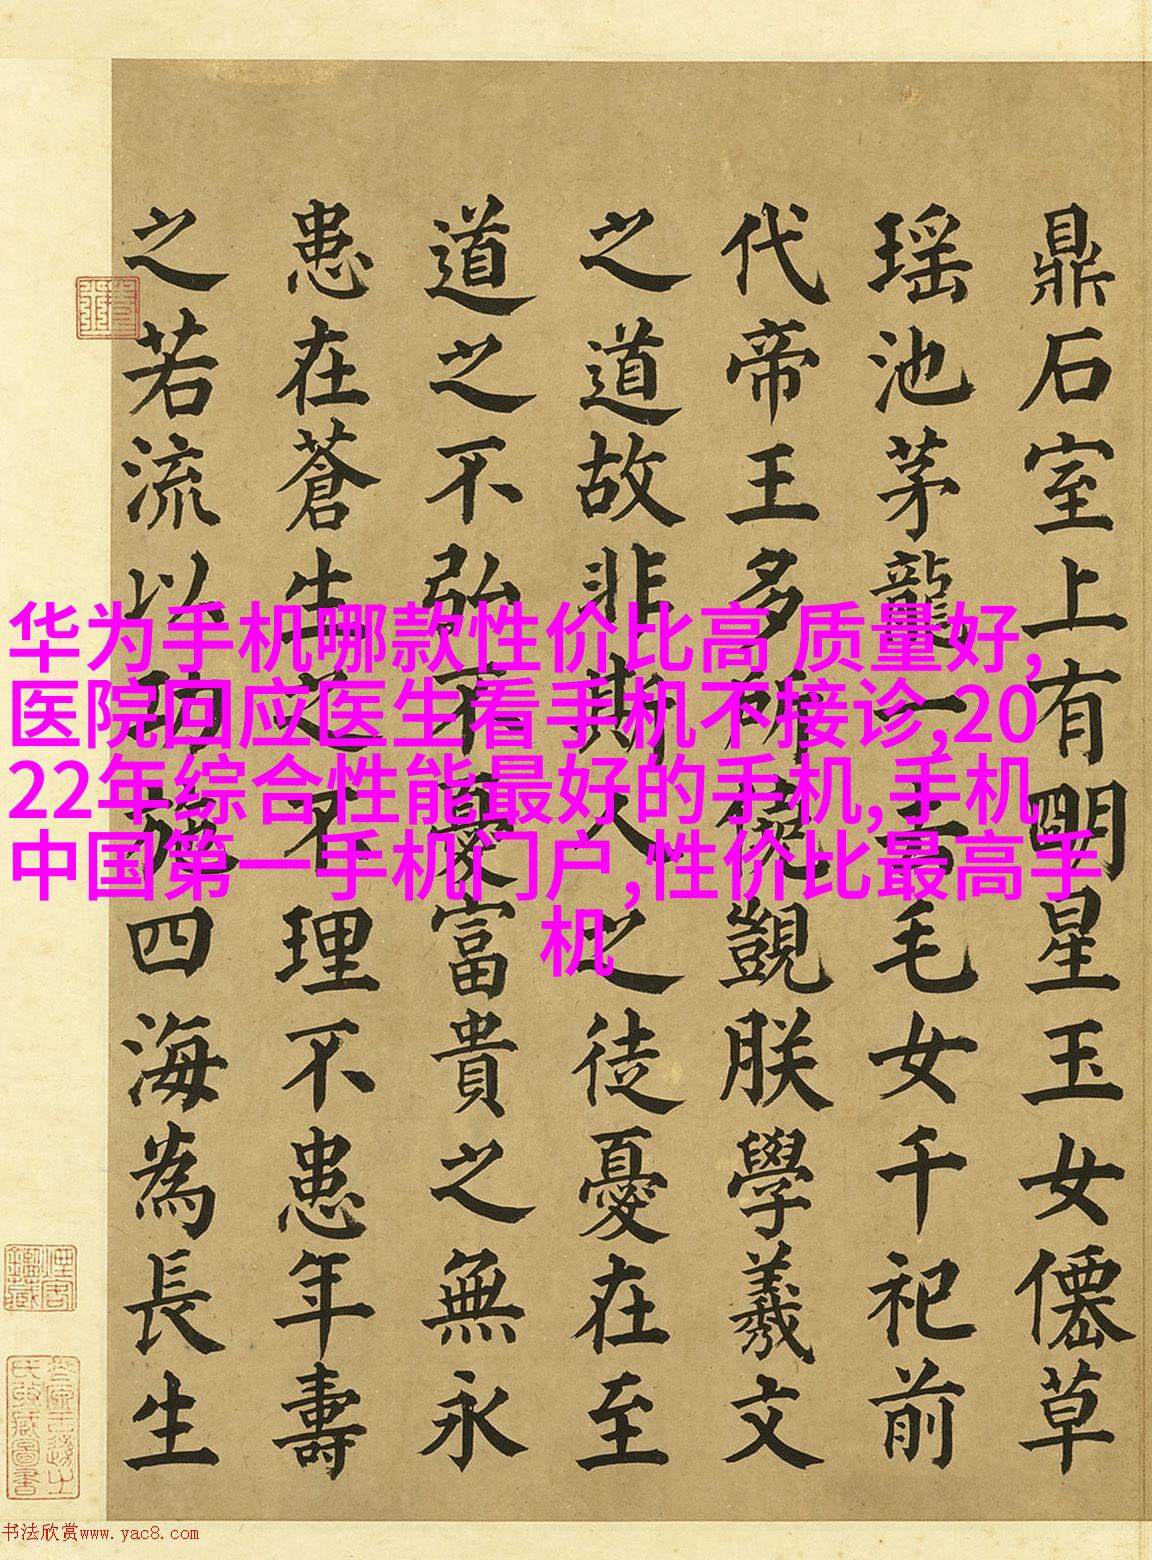 鼎石室上有明星玉女僊草
瑶池茅龍一去毛女千祀前
代帝王多所覬朕學羲文
之道故非斯人之徒憂在至
道之不弘不憂富貴之無永
患在蒼生之不理不患年壽
之若流以功施四海為長生
华为手机哪款性价比高 质量好,
医院回应医生看手机不接诊,20
22年综合性能最好的手机,手机
中国第一手机门户,性价比最高手
机
书法欣赏www.yac8.com